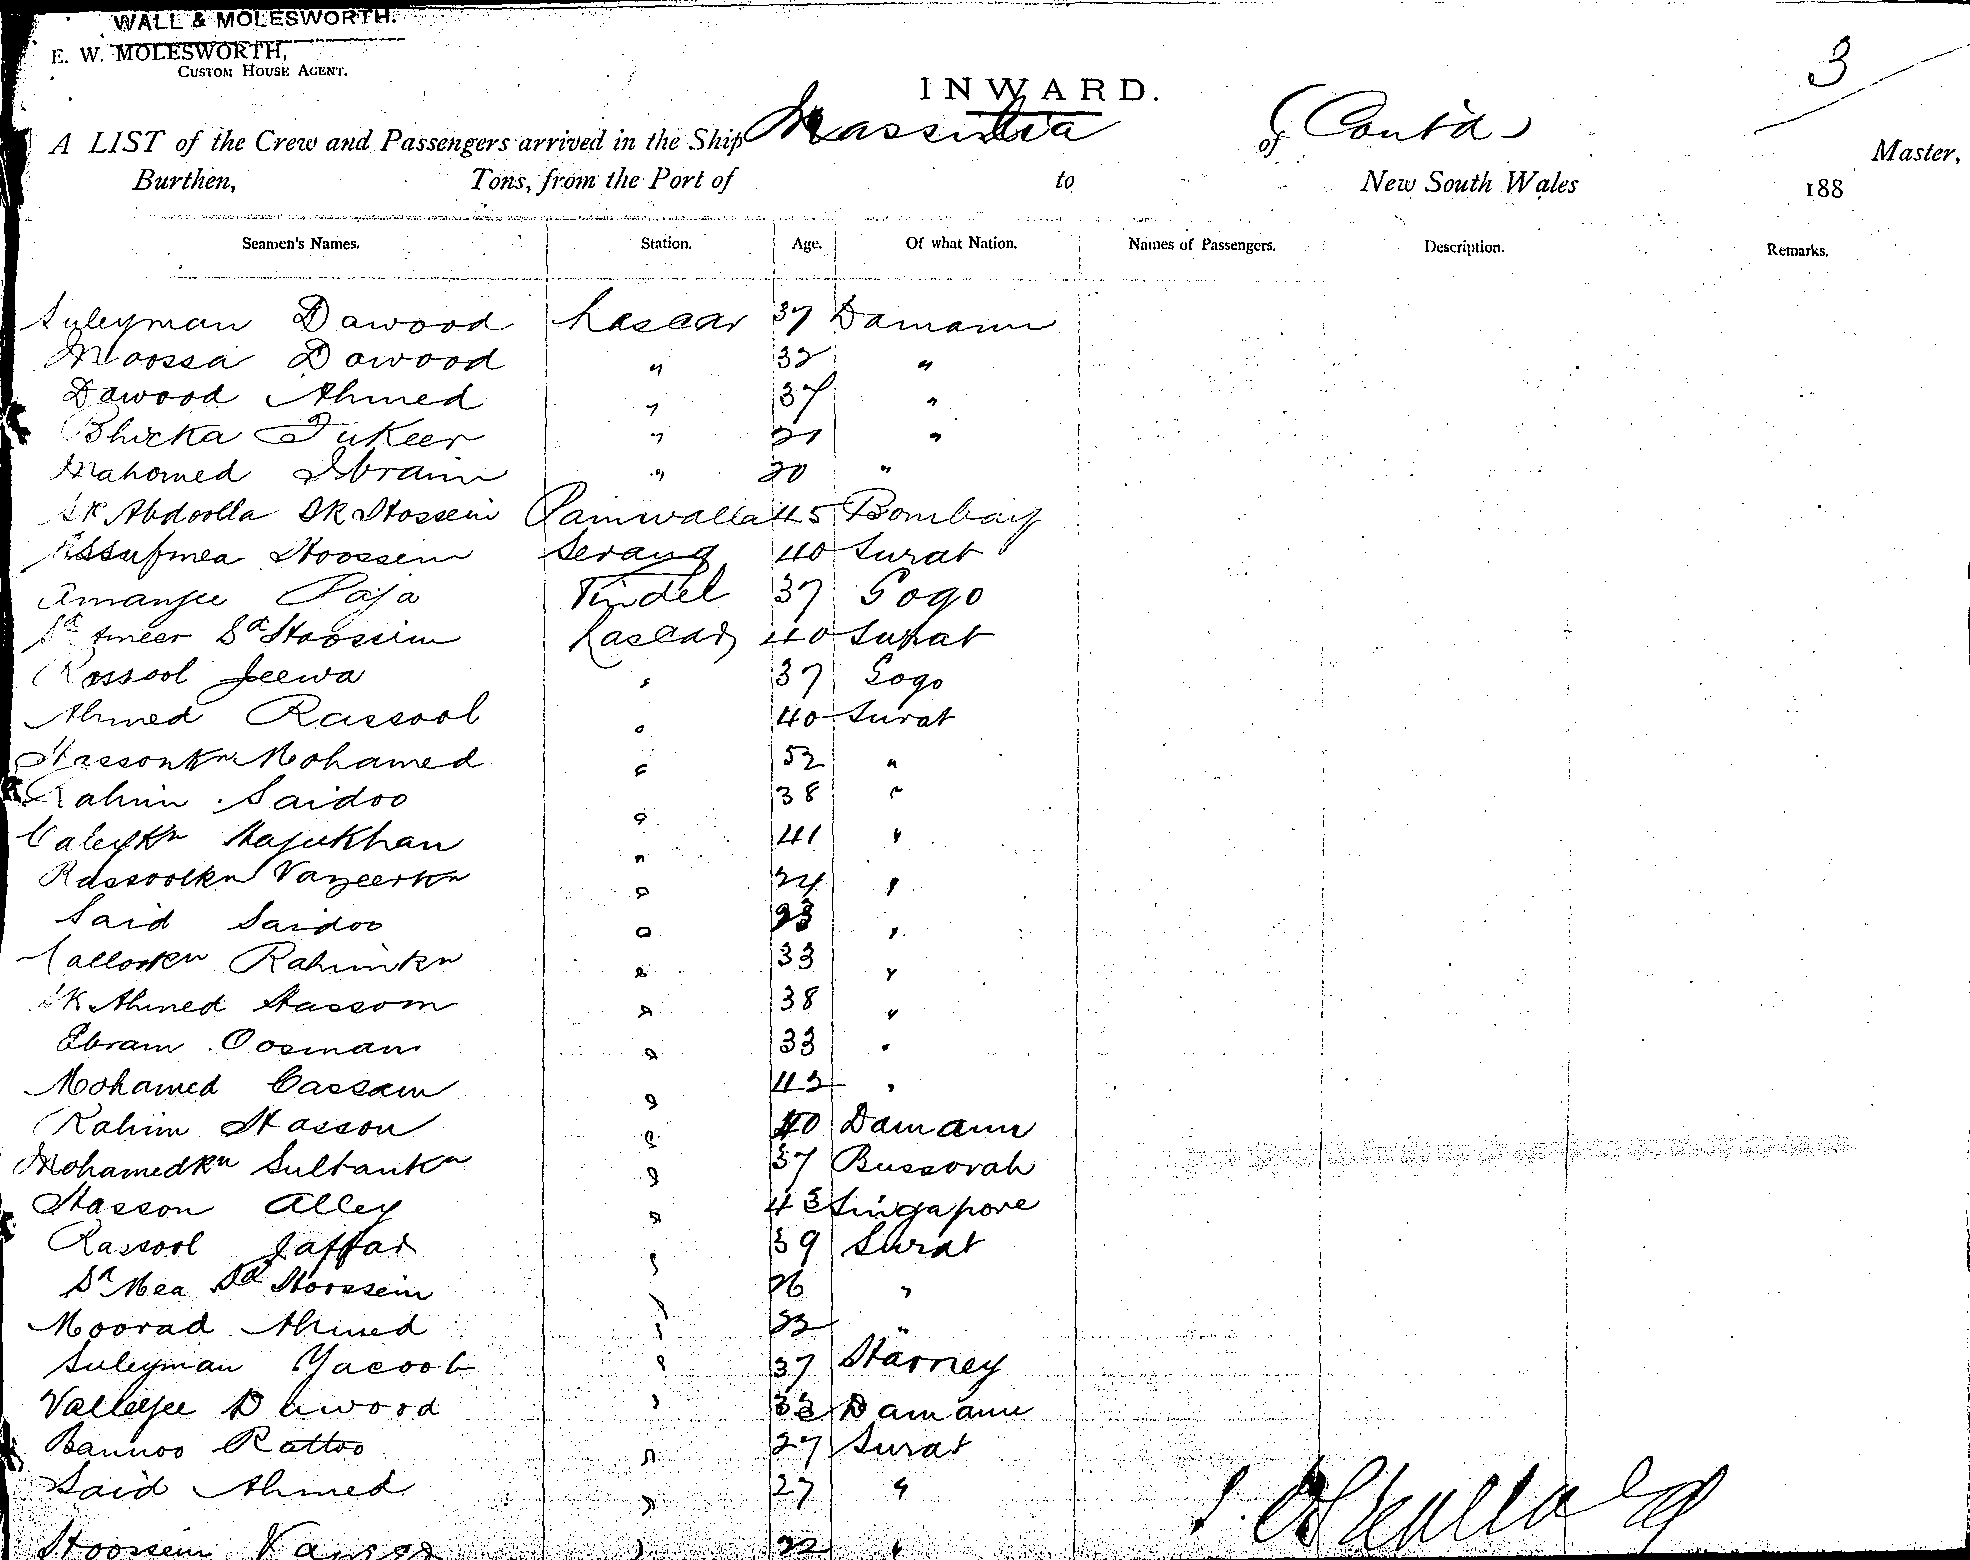 WALL & MOLESWORTH.
E. W. MOLESWORTH,
CUSTOM HOUSE AGENT.
3
INWARD.
A LIST of the Crew and Passengers arrived in the Ship Massilia of (Cont'd) Master,
Burthen, Tons, from the Port of to New South Wales 188
Seamen's Names. Station. Age. Of what Nation. Names of Passengers. Description. Remarks.
Suleyman Dawood Lascar 37 Damaun
Moossa Dawood " 32 "
Dawood Ahmed " 37 "
Bhicka Fukeer " 21 "
Mahomed Ibraim " 20 "
Sk Abdoolla Sk Hossein Painwalla 45 Bombay
Hoossein Serang 40 Surat
Amanjee Paja Tindel 37 Gogo
Sd Ameer Sd Hoossein Lascar 40 Surat
Rossool Jeewa " 37 Gogo
Ahmed Rassool " 40 Surat
Hassonkn Mohamed " 52 "
Rahim Saidoo " 38 "
Hajukhan " 41 "
Rassoolkn Vazeerkn " 24 "
Said Saidoo " 23 "
Callookn Rahimkn " 33 "
Sk Ahmed Hassom " 38 "
Ebram Oosman " 33 "
Mohamed Cassam " 42 "
Rahim Hasson " 40 Damaun
Mohamedkn Sultankn " 37 Bussorah
Hasson Alley " 43 Singapore
Rassool Jaffar " 39 Surat
Sd Mea Sd Hoossein " 26 "
Moorad Ahmed " 22 "
Suleyman Yacoob " 37
Valleejee Dawood " 32 Damaun
Bannoo Rattoo " 27 Surat
Said Ahmed " 27 "
Hoossein " 22 "